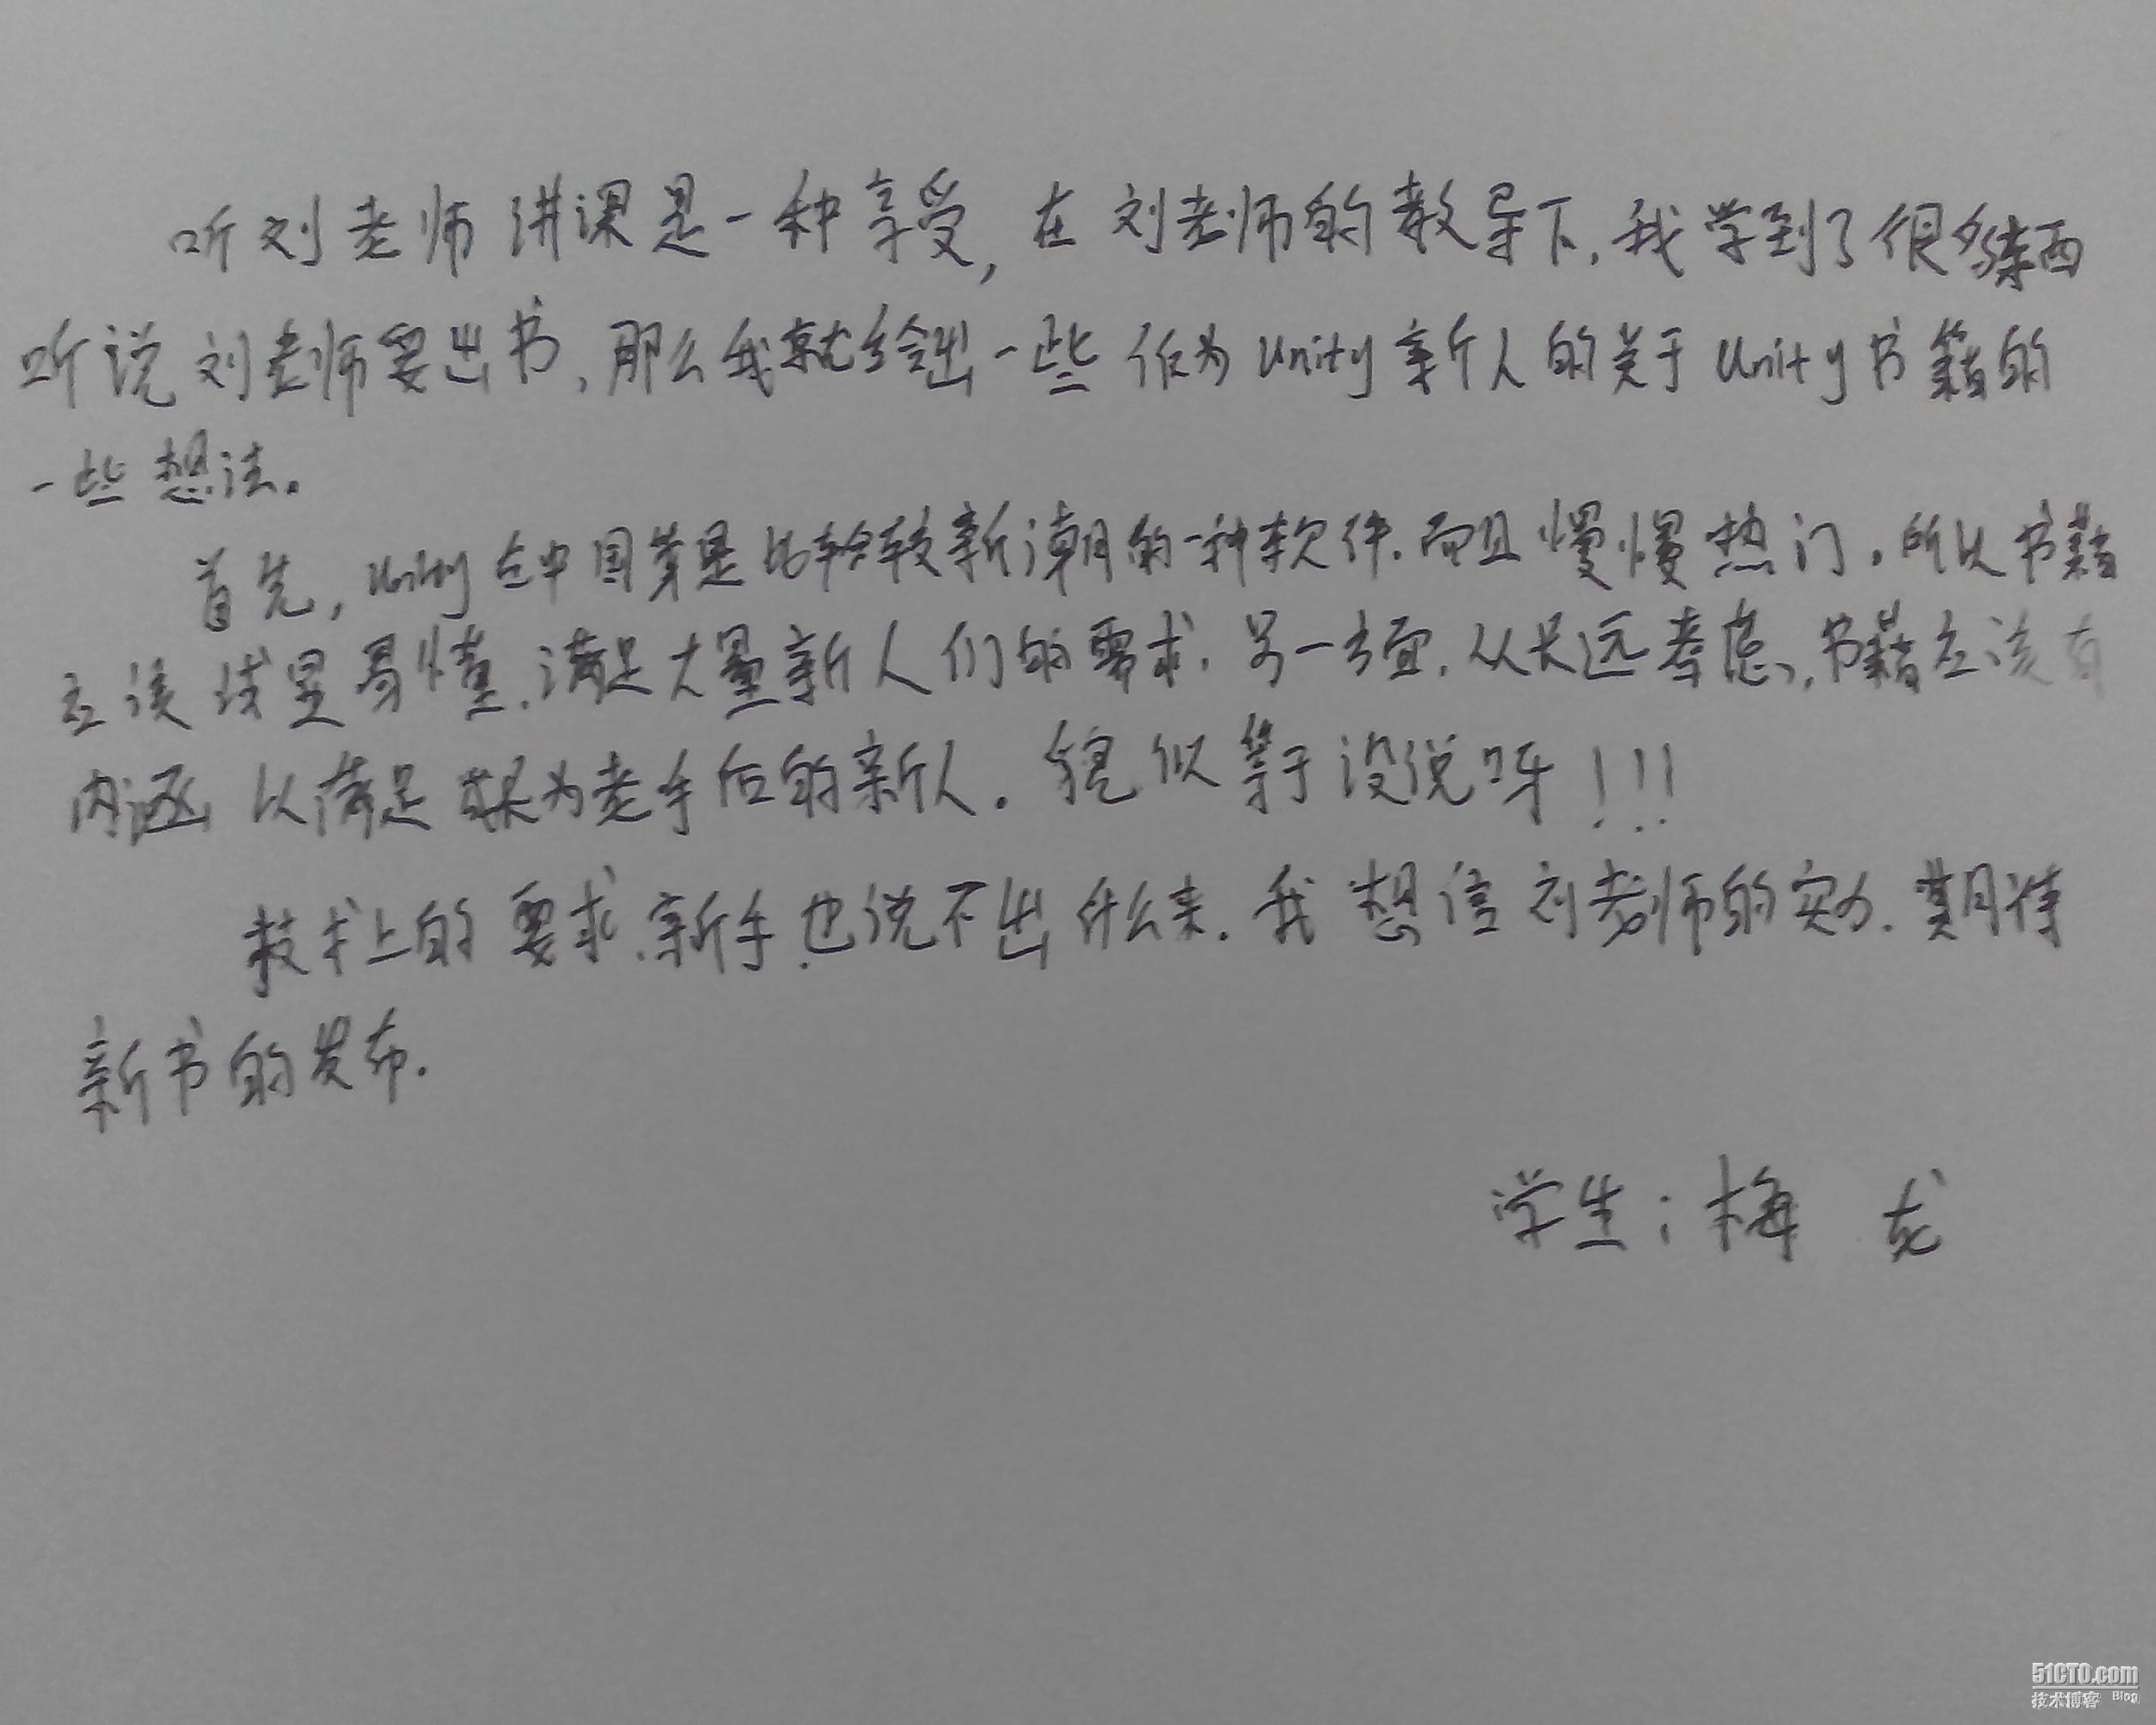 听刘老师讲课是一种享受,在刘老师的教导下,我学到了很多东西
听说刘老师要出书,那么我就给出一些作为Unity新人的关于Unity书籍的
一些想法。
首先,Unity在中国算是比较较新潮的一种软件.而且慢慢热门。所以书籍
应该浅显易懂.满足大量新人们的需求.另一方面.从长远考虑,书籍应该有
内涵 以满足成为老手后的新人。貌似等于没说呀!!!
技术上的要求.新手也说不出什么来.我想信刘老师的实力.期待
新书的发布.
学生:梅 龙
51CTO.com
技术博客 Blog